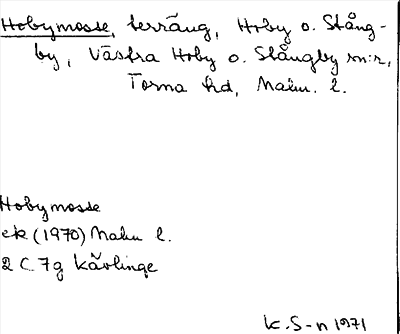 Hobymosse, terräng, Hoby o. Stång-
by, Västra Hoby o. Stångby sn:r,
Torna hd, Malm. l.
Hobymosse
ek (1970) Malm l.
2 C 7g Kävlinge
K. S-n 1971